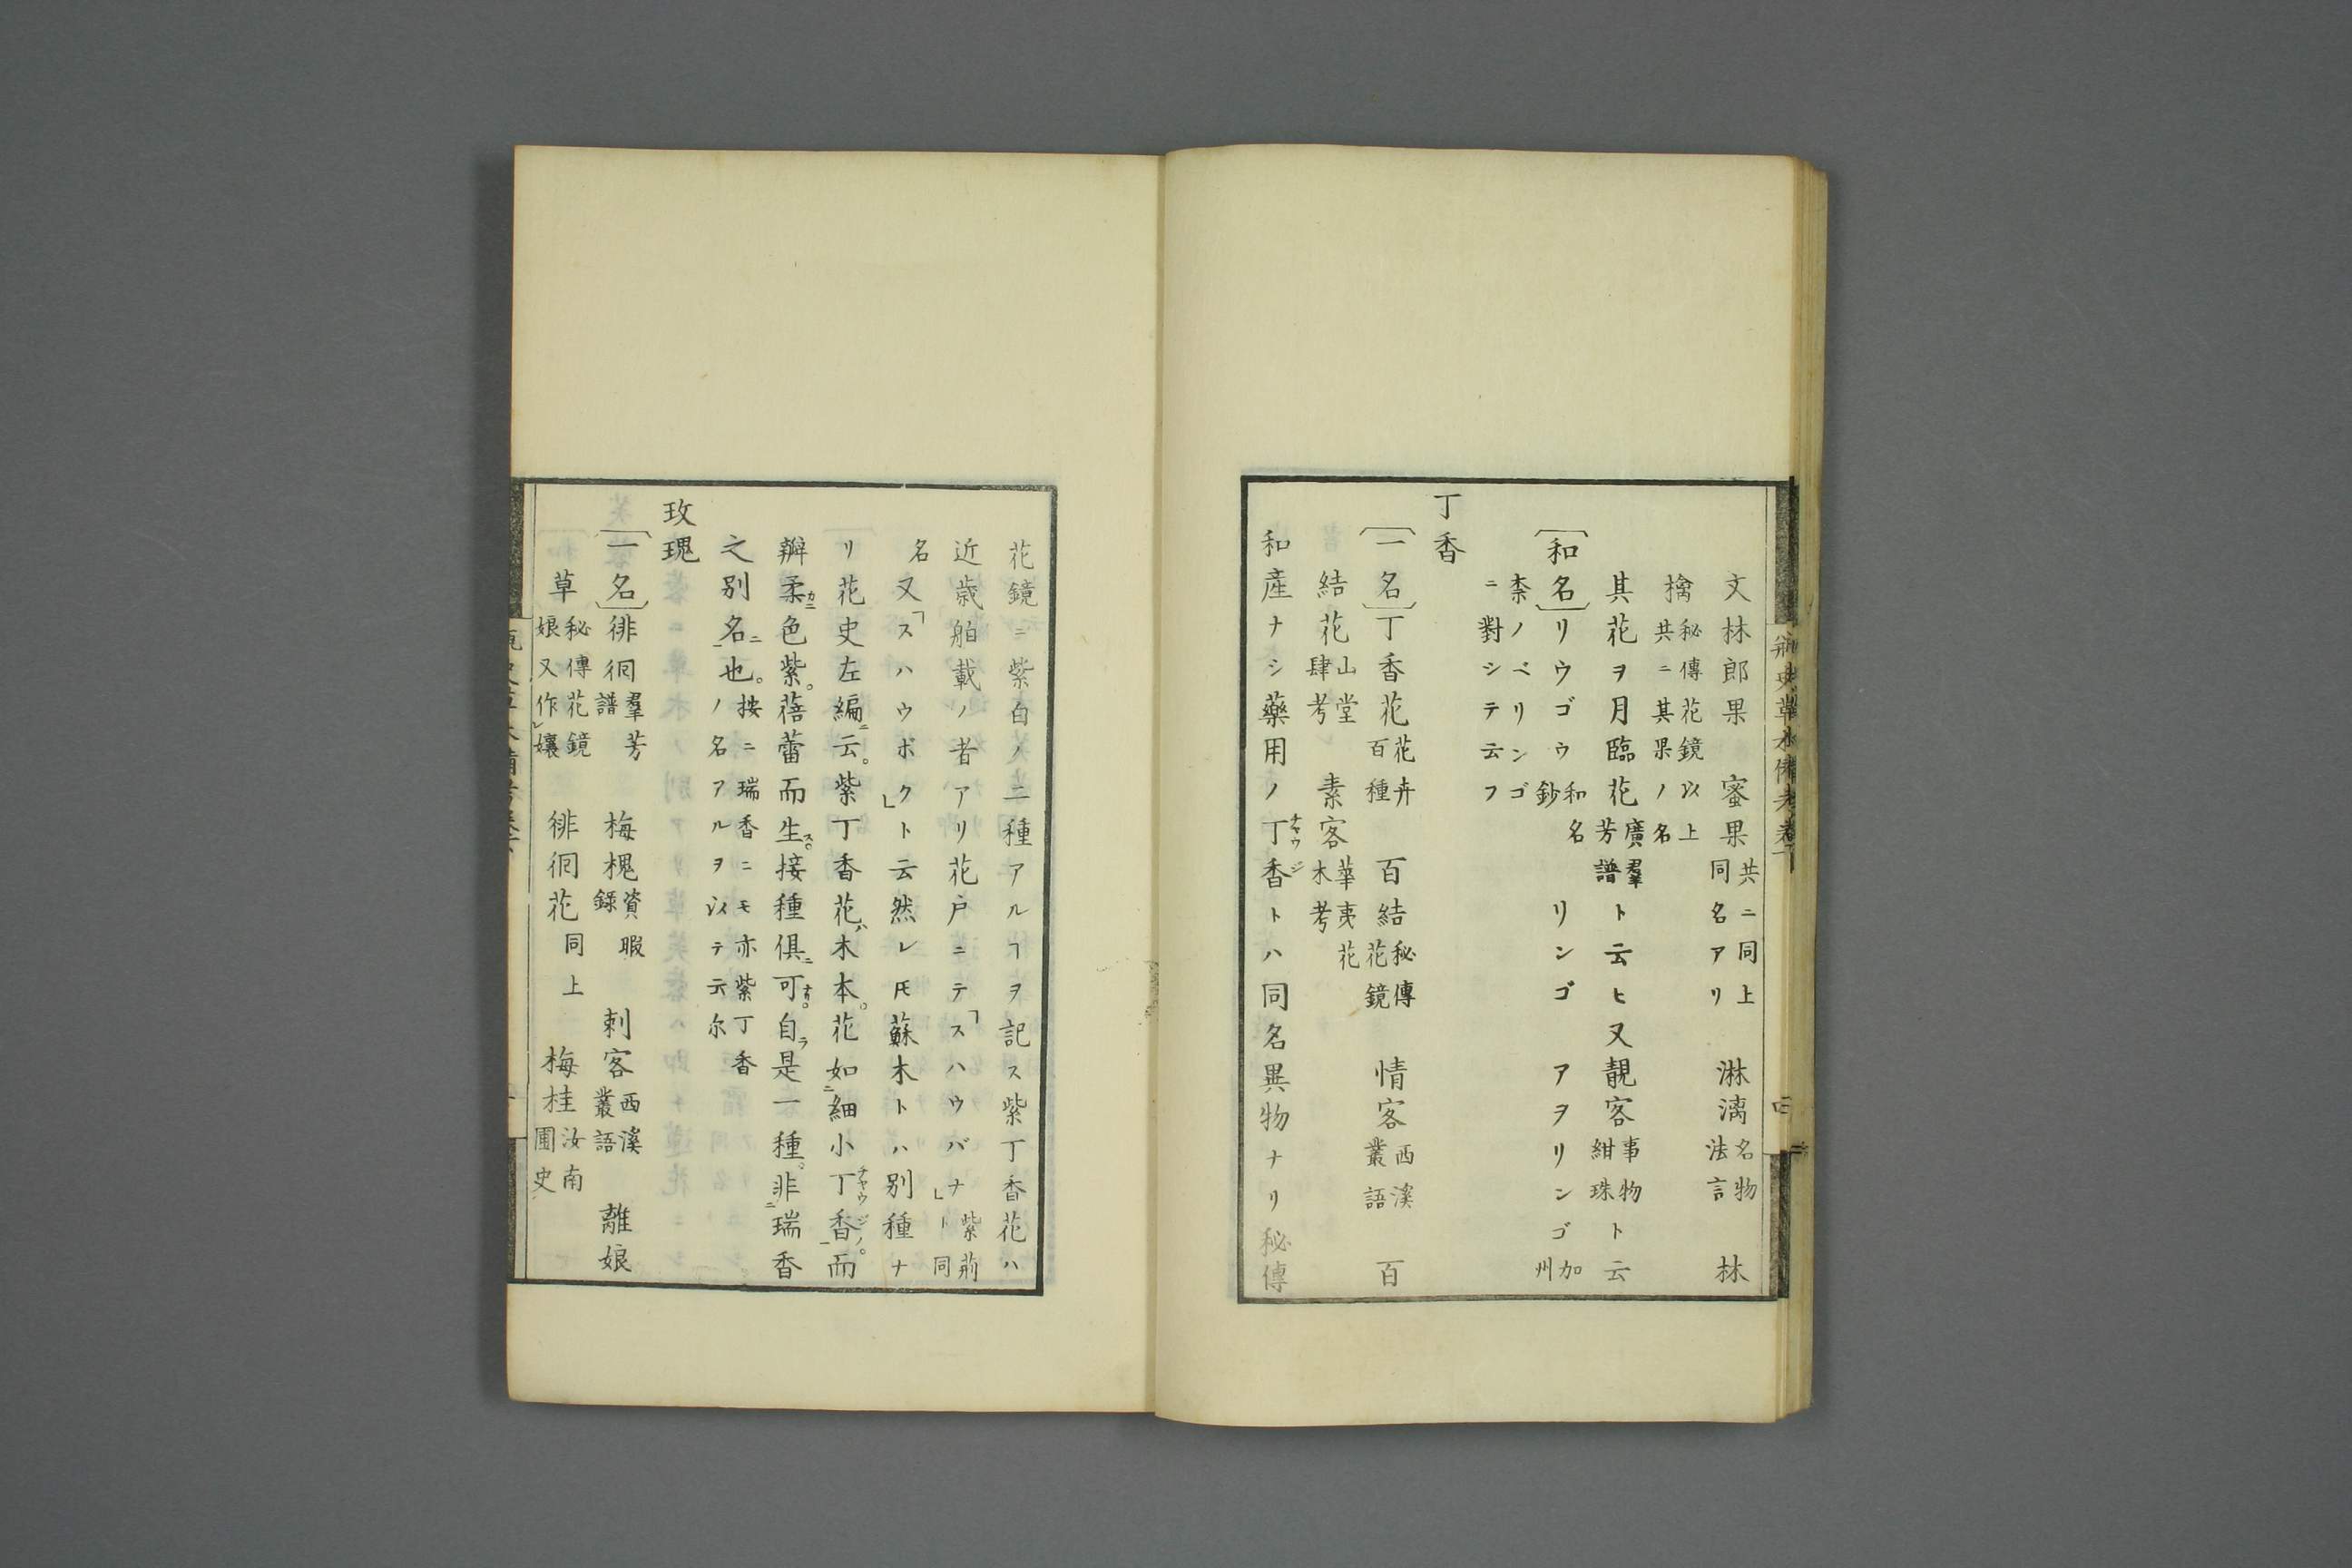 文林郎果　蜜果共ニ同上同名アリ　淋漓名物法言　林
檎秘傳花鏡以上共ニ其果ノ名
其花ヲ月臨花廣羣芳譜ト云ヒ又靚客事物紺珠ト云
〔和名〕リウゴウ和名鈔　リンゴ　アヲリンゴ加州
柰ノベリンゴニ對シテ云フ
丁香
〔一名〕丁香花花卉百種　百結秘傳花鏡　情客西溪叢語　百
結花山堂肆考　素客華夷花木考
和産ナシ藥用ノ丁香チヤウジトハ同名異物ナリ秘傳
花鏡ニ紫白ノ二種アルヿヲ記ス紫丁香花ハ
近歳舶載ノ者アリ花戸ニテ「スハウバナ」ト紫荊同
名又「スハウボク」ト云然レ𪜈蘇木トハ別種ナ
リ花史左編ニ云。紫丁香花ハ木本。花如ニ細小丁香チヤウジノ。一而
瓣柔カニ色紫。蓓蕾而生ス。接種俱ニ可ナリ。自ラ是一種。非ニ瑞香
之別名ニ一也。按ニ瑞香ニモ亦紫丁香ノ名アルヲ以テ云尓
玫瑰
〔一名〕徘徊羣芳譜　梅槐資暇錄　刺客西溪叢語　離娘
草秘傳花鏡娘又作レ孃　徘徊花同上　梅桂汝南圃史